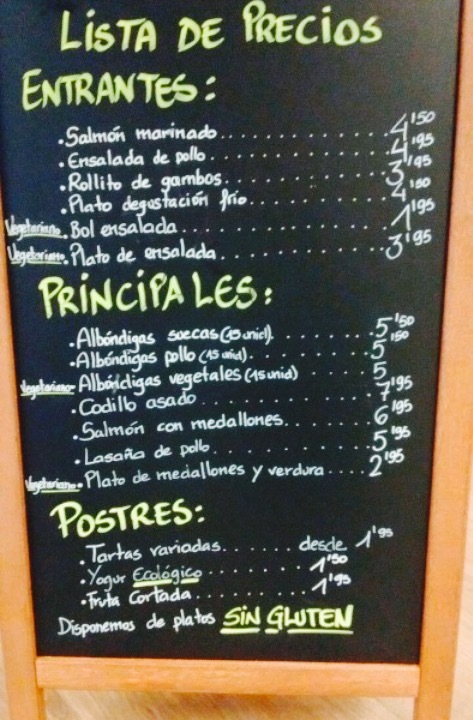 LISTA DE PRECIOS
ENTRANTES:
.Salmón marinado............4'50
.Ensalada de pollo............4'95
.Rollito de gambas............3'95
.Plato degustación frío............4'50
Vegetariano. Bol ensalada............1'95
Vegetariano. Plato de ensalada............3'95
PRINCIPALES:
.Albóndigas suecas (15 unid)............5'50
.Albóndigas pollo (15 unid)............5'50
Vegetariano. Albóndigas vegetales (15 unid)............5
.Codillo asado............7'95
.Salmón con medallones............6'95
.Lasaña de pollo............5'95
Vegetariano. Plato de medallones y verdura....2'95
POSTRES:
.Tartas variadas...... desde 1'95
.Yogur Ecológico............1'50
.Fruta Cortada............1'95
Disponemos de platos SIN GLUTEN